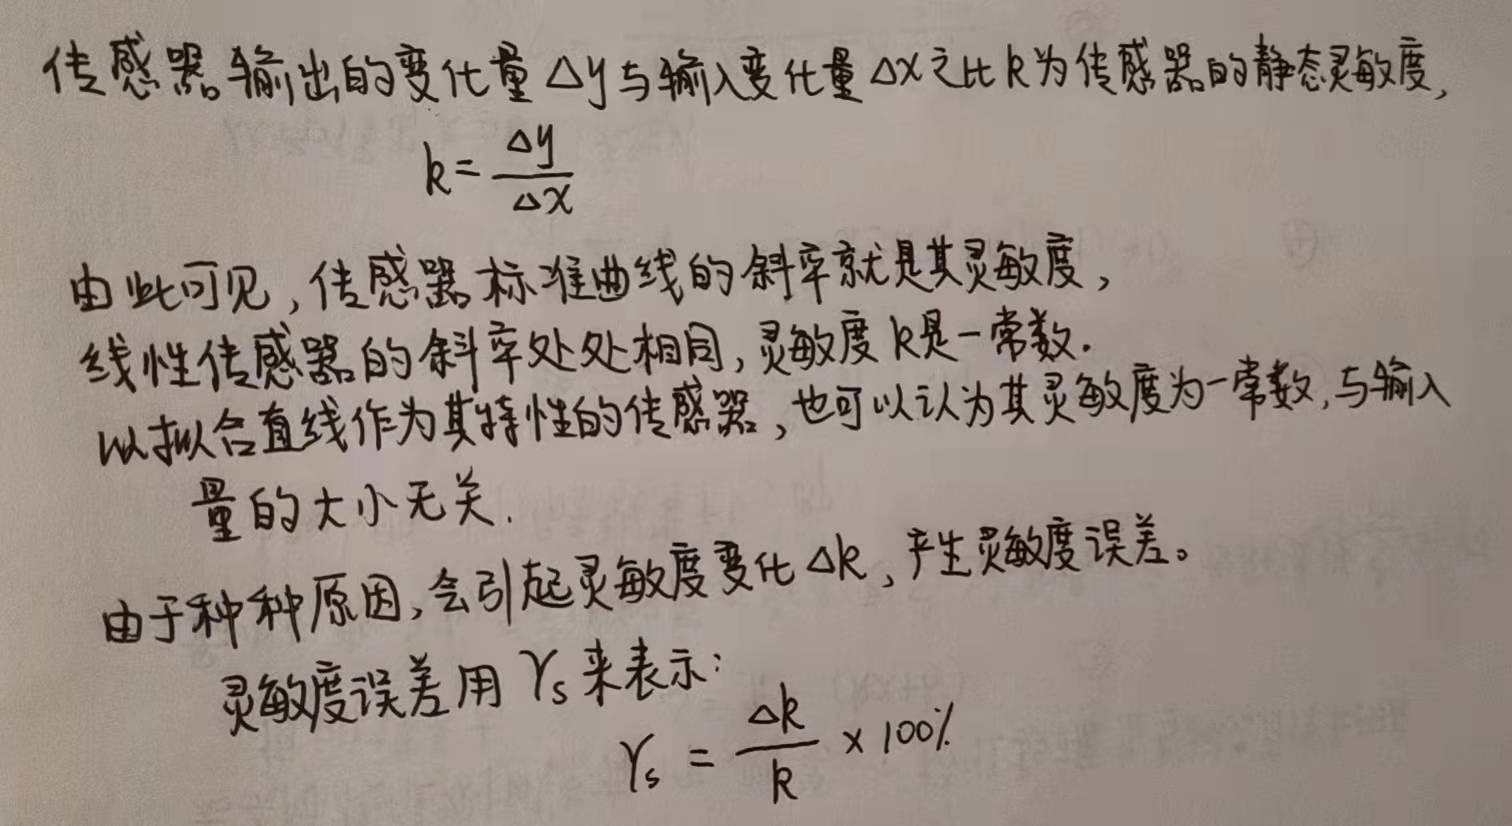 传感器输出的变化量 Δy与输入变化量 Δx之比k为传感器的静态灵敏度,
k = Δy/Δx
由此可见,传感器标准曲线的斜率就是其灵敏度,
线性传感器的斜率处处相同,灵敏度k是一常数.
以拟合直线作为其特性的传感器,也可以认为其灵敏度为一常数,与输入
量的大小无关.
由于种种原因,会引起灵敏度变化Δk,产生灵敏度误差。
灵敏度误差用 γs 来表示:
γs = Δk/k × 100%